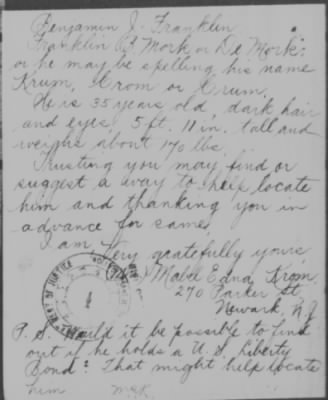 Benjamin J. Franklin
Franklin B. Mork or De Mork:
or he may be spelling his name
Krum, Krom or Crum.
He is 35 years old, dark hair
and eyes, 5 ft. 11 in. tall and
weighs about 170 lbs
Trusting you may find or
suggest a way to help locate
him and thanking you in
advance for same,
I am
Very gratefully yours,
Mabel Edna Krom
270 Parker St.
Newark, N.J.
OF JUSTICE
P.S. Would it be possible to find
out if he holds a U.S. Liberty
Bond? That might help locate
him M.E.K.